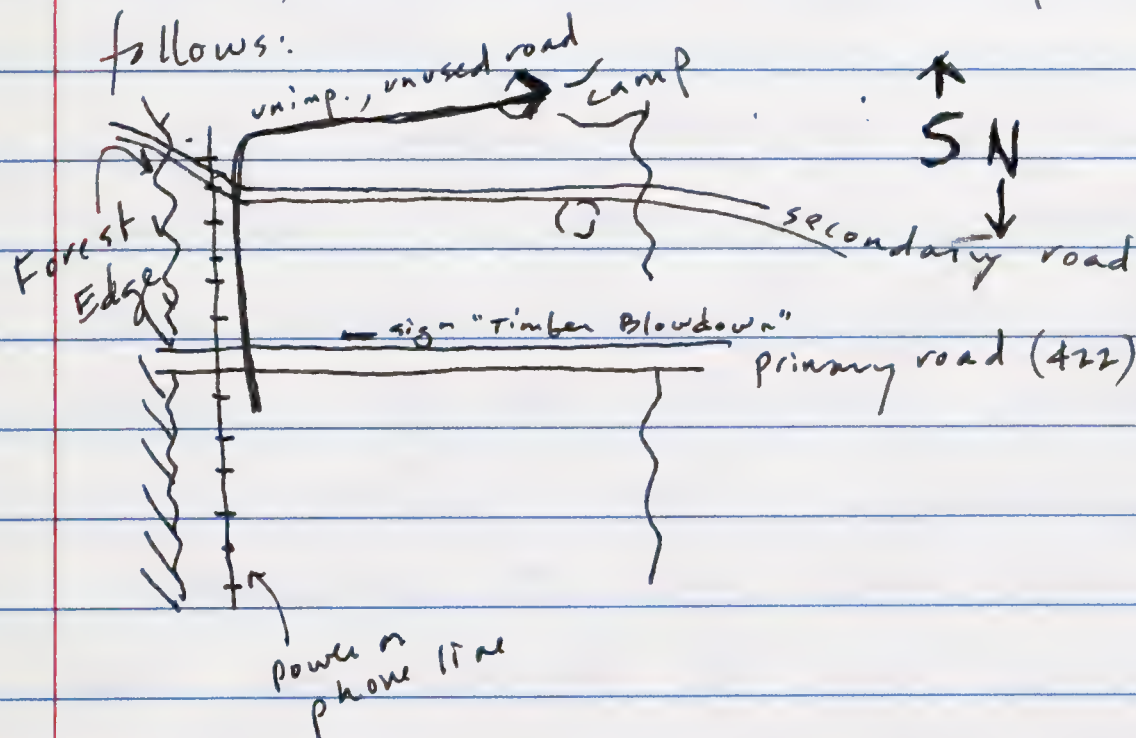 follows:
unimp., unused road
camp
S N
Forest
Edge
secondary road
sign "Timber Blowdown"
primary road (422)
power or
phone line